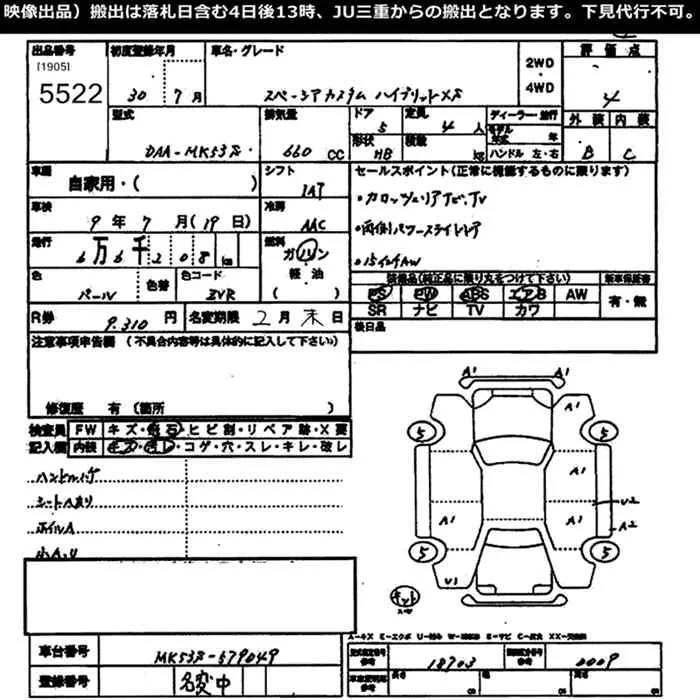 映像出品）搬出は落札日含む4日後13時、JU三重からの搬出となります。下見代行不可。
出品番号 初度登録年月 車名・グレード 2WD・4WD 評価点
[1905]
5522 30 7月 スペーシアカスタム ハイブリッドXS 4
型式 排気量 ドア 5 定員 4人 ディーラー 並行 外装 内装
モデル年式 年
DAA-MK53S 660 CC 形状 HB 積載 kg ハンドル 左・右 B C
車歴 自家用・( ) シフト 1AT セールスポイント（正常に機能するものに限ります）
車検 9年7月(19日) 冷房 AAC ・カロッツェリアナビ、TV
走行 6万6千208 km 燃料 ガソリン 軽油 ( ) ・両側パワースライドドア
・15インチAW
色 パール 色替 色コード ZVR 装備品(純正品に限り丸をつけて下さい) 新車保証書
PS PW ABS エアB AW 有・無
SR ナビ TV カワ
R券 9,310円 名変期限 2月末日 後日品
注意事項申告欄（不具合内容等は具体的に記入して下さい）
修復歴 有（箇所 ）
検査員記入欄 FW キズ・飛石・ヒビ割・リペア跡・X要
内装 キズ・汚レ・コゲ・穴・スレ・キレ・破レ
シートA有り
ホイルA
小A、U
A1 A1
A1
5 5
A1
U2
A1 A1 A2
5 5
U1
A-キズ E-エクボ U-凹み W-補修跡 S-サビ C-腐食 XX-交換済
車台番号 MK53S-579049 型式指定番号 参考 18703 類別区分番号 参考 0009
登録番号 名変中 車体寸法 参考 長さ cm 幅 cm 高さ cm